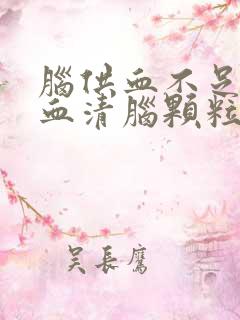 腦供血不足
血清腦顆粒
吴長鷹